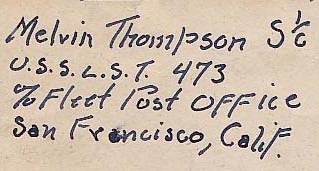 Melvin Thompson S 1/c
U.S.S. L.S.T. 473
℅ Fleet Post Office
San Francisco, Calif.